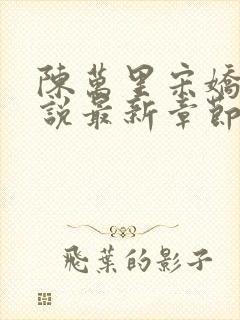 陳萬里宋嬌
說最新章節
飛葉的影子